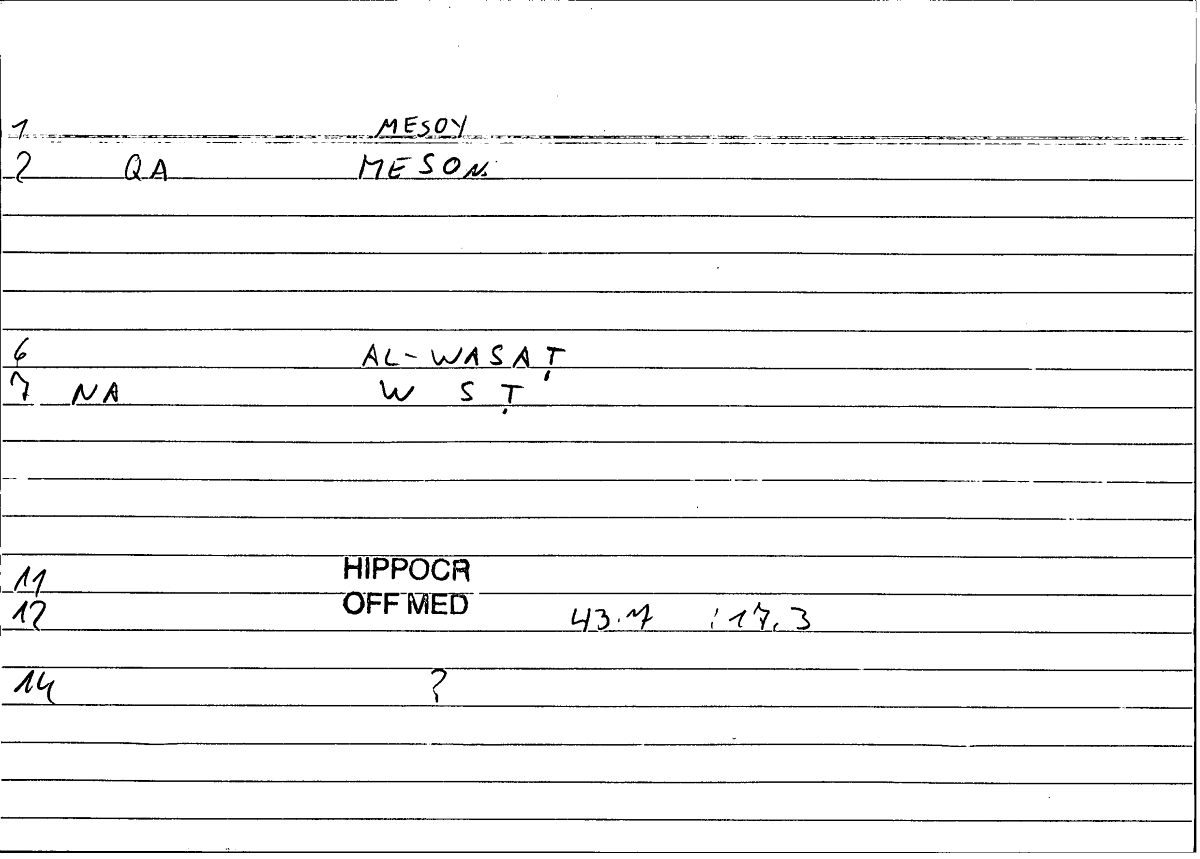 1 MESOY
2 QA MESON.
6 AL-WASAṬ
7 NA W S Ṭ
11 HIPPOCR
12 OFF MED 43.7 :17.3
14 ?